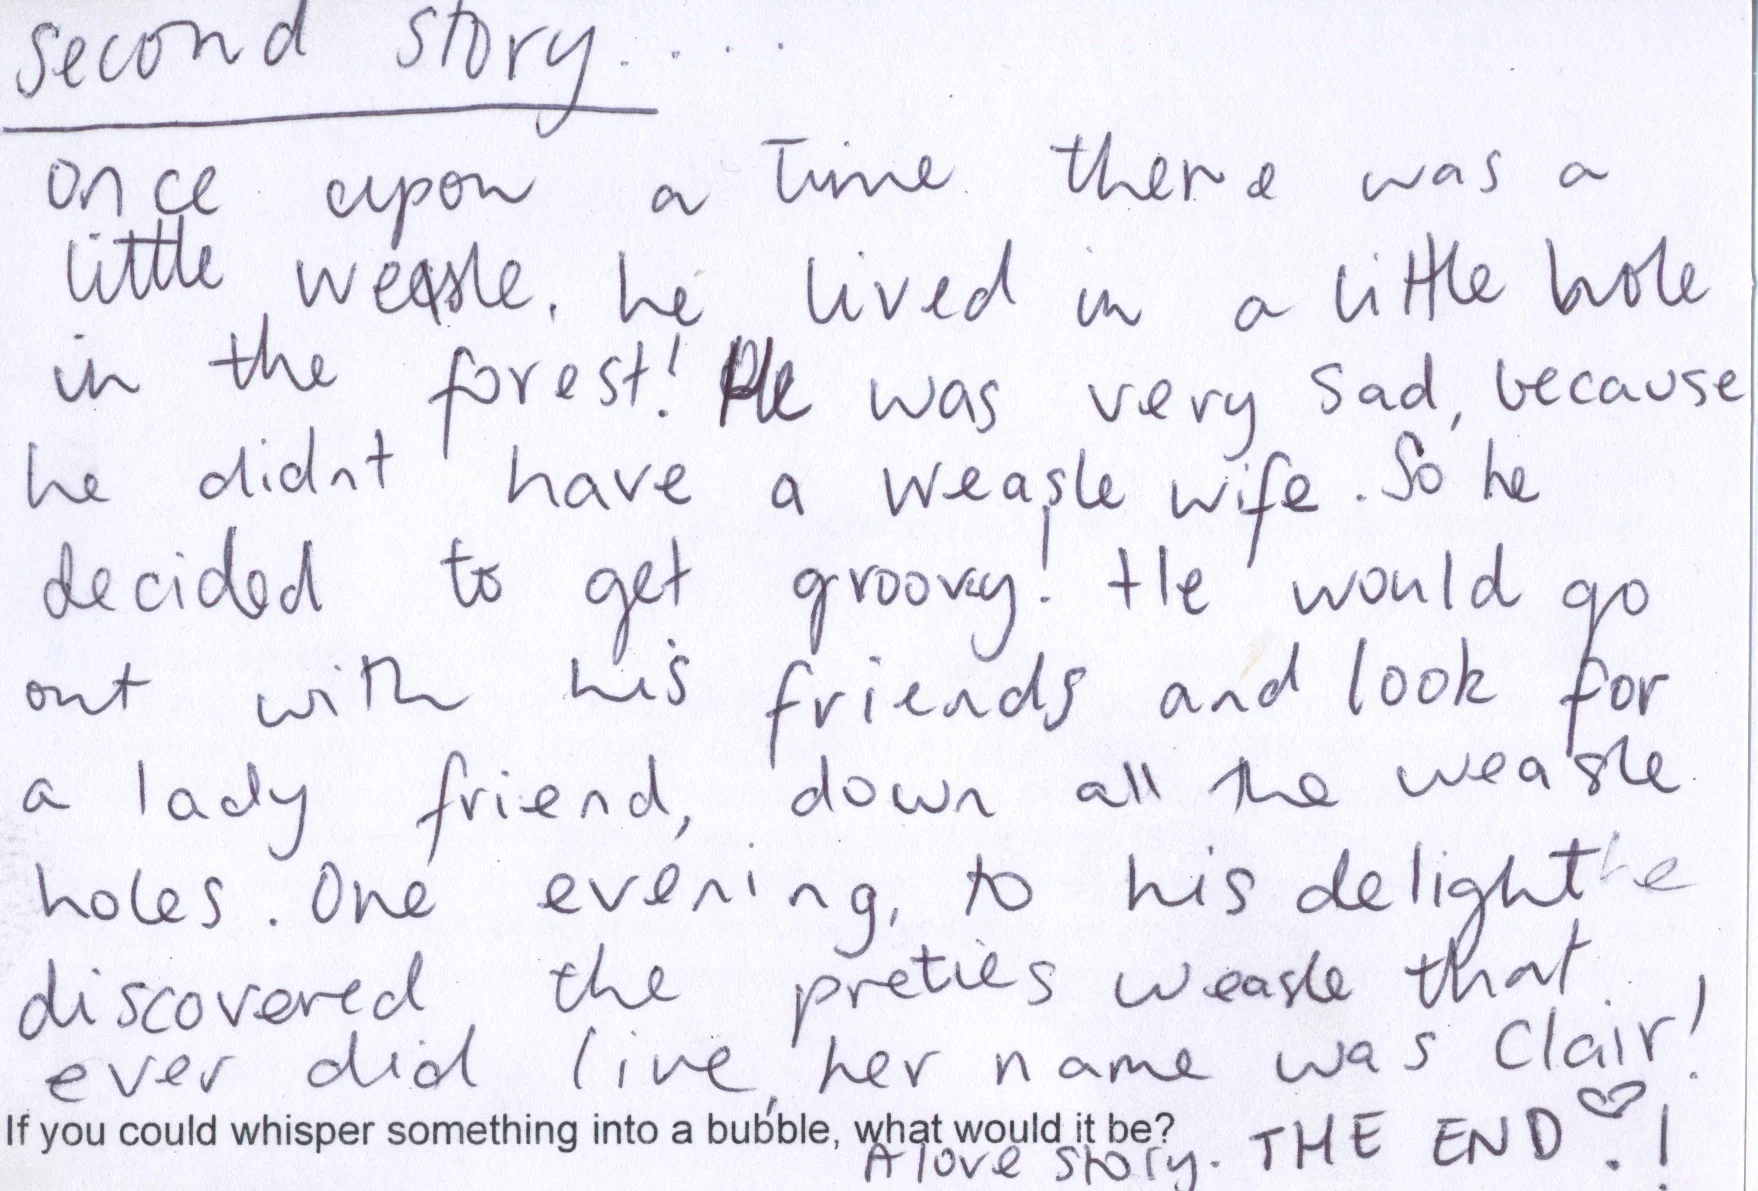 second story....
once upon a time there was a
little weasle. he lived in a little hole
in the forest! He was very sad, because
he didnt have a weasle wife. So he
decided to get groovy! He would go
out with his friends and look for
a lady friend, down all the weasle
holes. One evening, to his delight he
discovered the preties weasle that
ever did live, her name was Clair!
If you could whisper something into a bubble, what would it be?
A love story. THE END ♡.!